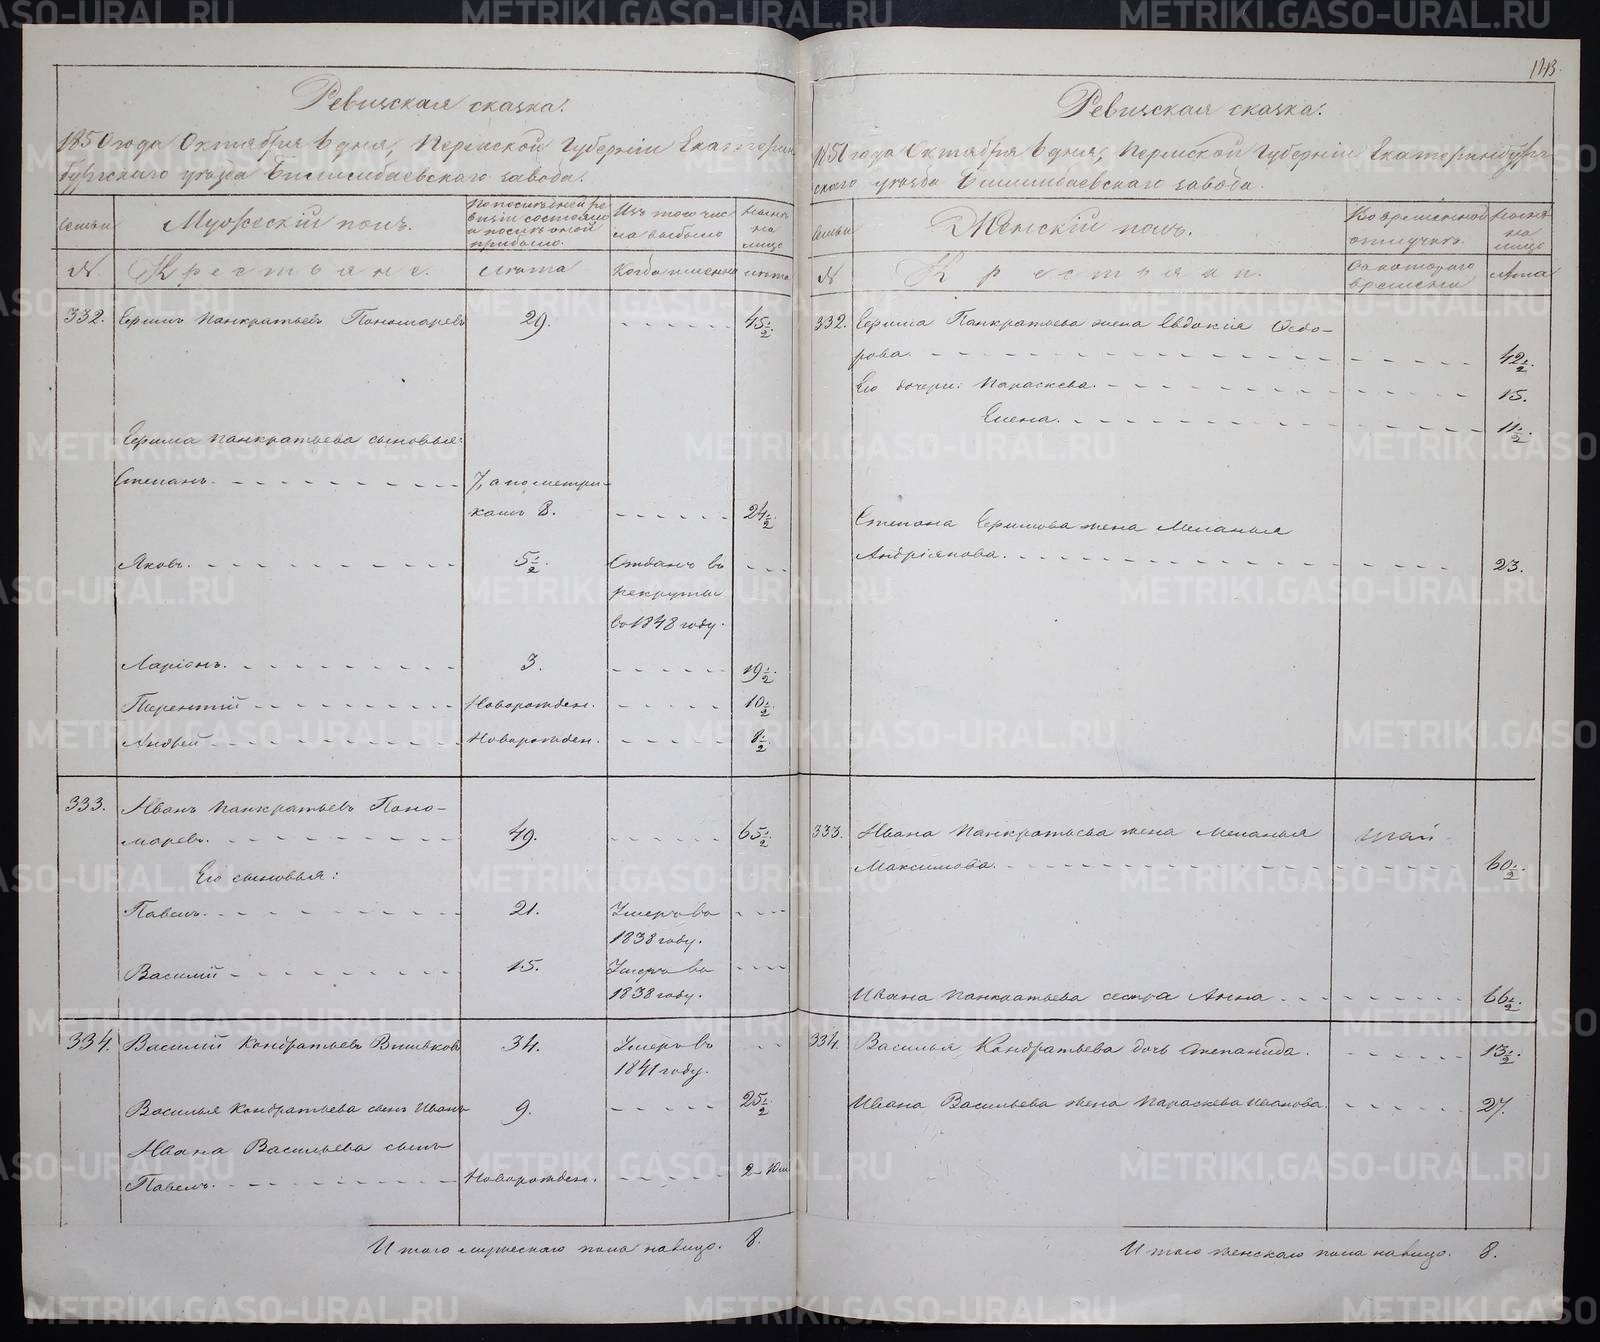 143.
Ревизская сказка.
1850 года Октября 6 дня, Пермской Губерніи Екатерин
бургскаго уѣзда Билимбаевскаго завода.
семьи
Мужескій полъ.
По послѣдней ре
визіи состояло
и послѣ оной
прибыло.
Изъ того чис
ла выбыло
Нынѣ
на
лицо
№
Крестьяне.
лѣта
Когда именно
лѣта
332. Ефимъ Панкратьевъ Пономаревъ 29. 45½
Ефима Панкратьева сыновья:
Степанъ. 7, а по метри-
камъ 8. 24½
Яковъ. 5½. Отданъ въ
рекруты
въ 1848 году.
Ларіонъ. 3. 19½.
Терентій Новорожден. 10½.
Андрей Новорожден. 8½.
333. Иванъ Панкратьевъ Поно-
маревъ. 49. 65½.
Его сыновья:
Павелъ. 21. Умеръ въ
1838 году.
Василій 15. Умеръ въ
1838 году.
334. Василій Кондратьевъ 34. Умеръ въ
1841 году.
Василья Кондратьева сынъ Иванъ 9. 25½
Ивана Васильева сынъ
Павелъ. Новорожден. 2
Итого мужескаго пола налицо. 8.
Ревизская сказка.
1850 года Октября 6 дня, Пермской Губерніи Екатеринбург-
скаго уѣзда Билимбаевскаго завода.
семьи
Женскій полъ.
Во временной
отлучкѣ.
Нынѣ
на
лицо
№
Крестьяни.
Съ котораго
времени
Лѣта
332. Ефима Панкратьева жена Евдокія Ѳедо-
рова. 42½.
Его дочери: Параскева. 15.
Елена. 11½.
Степана Ефимова жена Меланья
Андріянова. 23.
333. Ивана Панкратьева жена Меланья
Максимова. 60½.
Ивана Панкратьева сестра Анна 66½.
334. Василья Кондратьева дочь Степанида. 13½.
Ивана Васильева жена Параскева Иванова. 27.
Итого женскаго пола налицо. 8.
METRIKI.GASO-URAL.RU